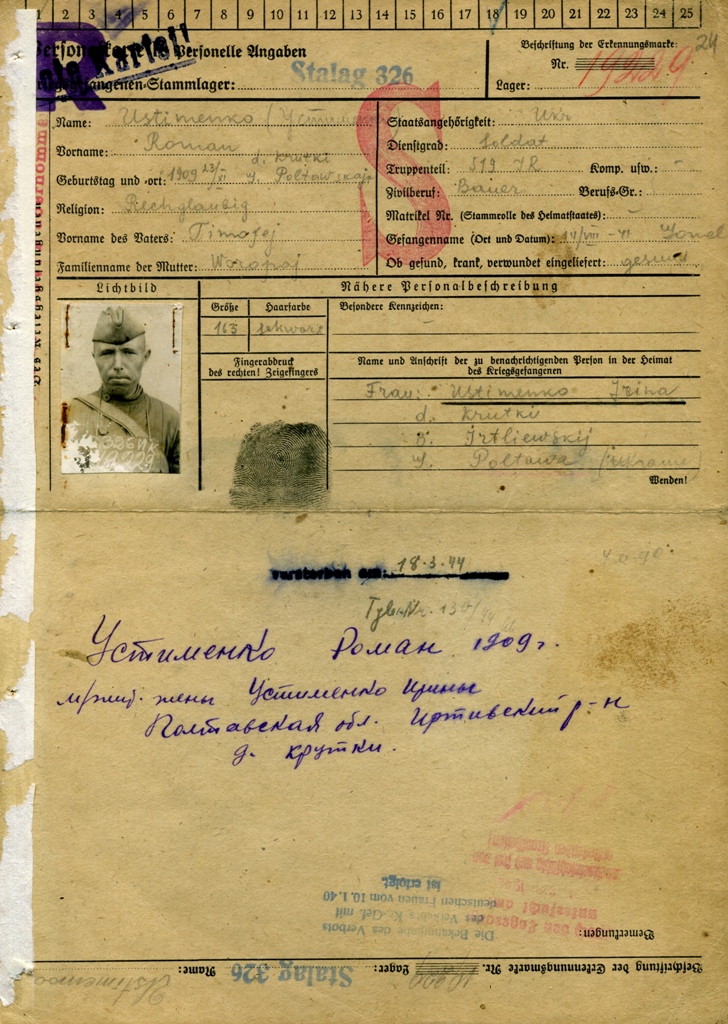 1 2 3 4 5 6 7 8 9 10 11 12 13 14 15 16 17 18 19 20 21 22 23 24 25
24
Personelle Angaben
Beschriftung der Erkennungsmarke:
Nr. 19229
Kriegsgefangenen-Stammlager: Stalag 326
Lager:
S
Name: Ustimenko
Vorname: Roman
d. Krutki
Geburtstag und -ort: 1909 Poltawskaja
Religion: Rechglaubig
Vorname des Vaters: Timofej
Familienname der Mutter: Woropaj
Staatsangehörigkeit: Ukr
Dienstgrad: Soldat
Truppenteil: 519 IR Komp. usw.: -
Zivilberuf: Bauer Berufs-Gr.: -
Matrikel Nr. (Stammrolle des Heimatstaates): -
Gefangennahme (Ort und Datum): 14/VIII - 41 Gomel
Ob gesund, krank, verwundet eingeliefert: gesund
Lichtbild
Nähere Personalbeschreibung
Größe Haarfarbe Besondere Kennzeichen:
163 schwarz
Fingerabdruck
des rechten! Zeigefingers
Name und Anschrift der zu benachrichtigenden Person in der Heimat
des Kriegsgefangenen
Frau: Ustimenko Irina
d. Krutki
Irtliewskij
Poltawa (Ukraine)
Wenden!
verstorben am: 18-3-44
Устименко Роман 1909 г.
жены Устименко Ирины
Полтавская обл. Иртивский р-н
д. Крутки.
Bemerkungen:
Die Bekanntgabe des Verbots
des Verkehrs Kr.-Gef. mit
deutschen Frauen vom 10.1.40
ist erfolgt.
Beschriftung der Erkennungsmarke Nr.
Lager: Stalag 326
Name: Ustimenko